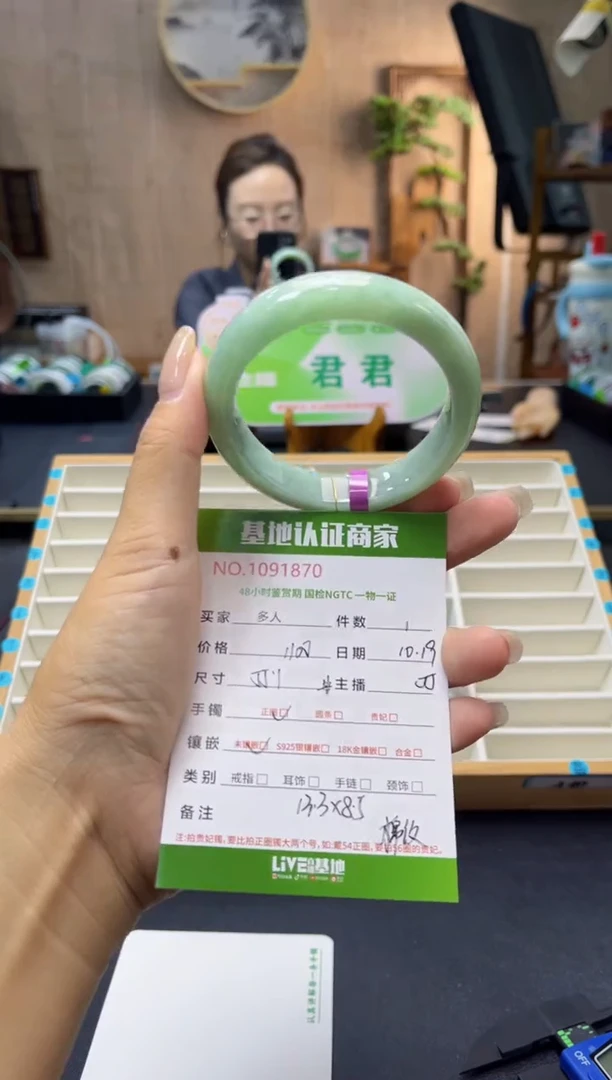 君君
基地认证商家
NO.1091870
48小时鉴赏期 国检NGTC 一物一证
买家 多人 件数 1
价格 日期 10.19
尺寸 主播
手镯 正圈☑ 圆条□ 贵妃□
镶嵌 未镶嵌☑ S925银镶嵌□ 18K金镶嵌□ 合金□
类别 戒指□ 耳饰□ 手链□ 颈饰□
备注 13.3×8.5
棉纹
注:拍贵妃镯,要比拍正圈镯大两个号,如:戴54正圈,要拍56圈的贵妃。
LIVE基地
OFF